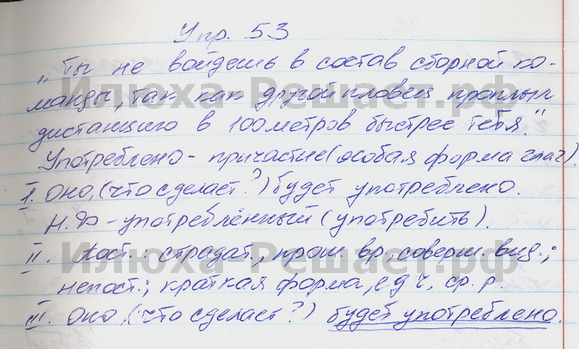 Упр. 53
„Ты не войдешь в состав сборной ко-
манды, так как другой пловец проплыл
дистанцию в 100 метров быстрее тебя."
Употреблено - причастие (особая форма глаг).
I. Оно, (что сделает?) будет употреблено.
Н.Ф - употреблённый (употребить).
II. Пост.: страдат., прош вр, соверш. вид.;
непост.; краткая форма, ед ч, ср. р.
III. Оно, (что сделает?) будет употреблено.
Илюха-Решает.рф
Илюха-Решает.рф
Илюха-Решает.рф